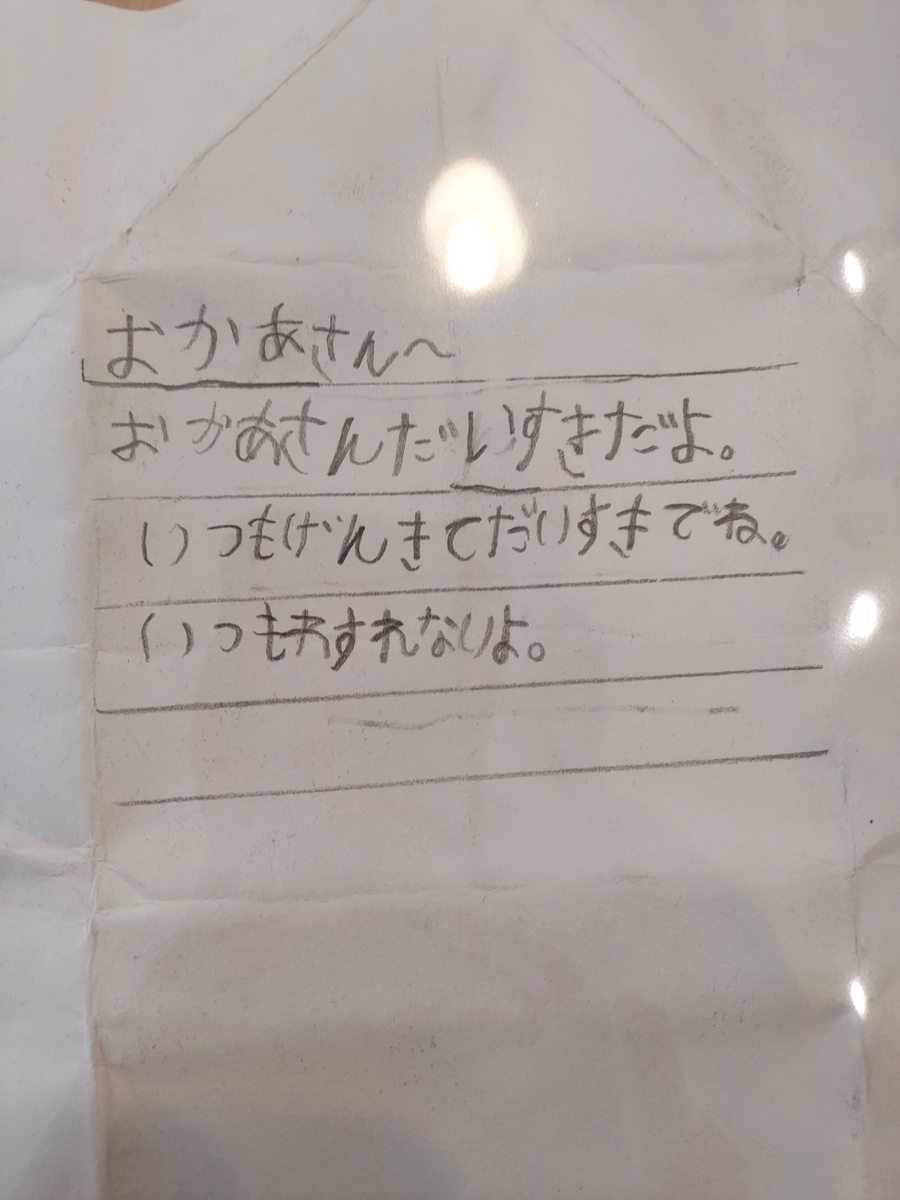 おかあさん～
おかあさんだいすきだよ。
いつもげんきてだいすきでね。
いつもわすれないよ。